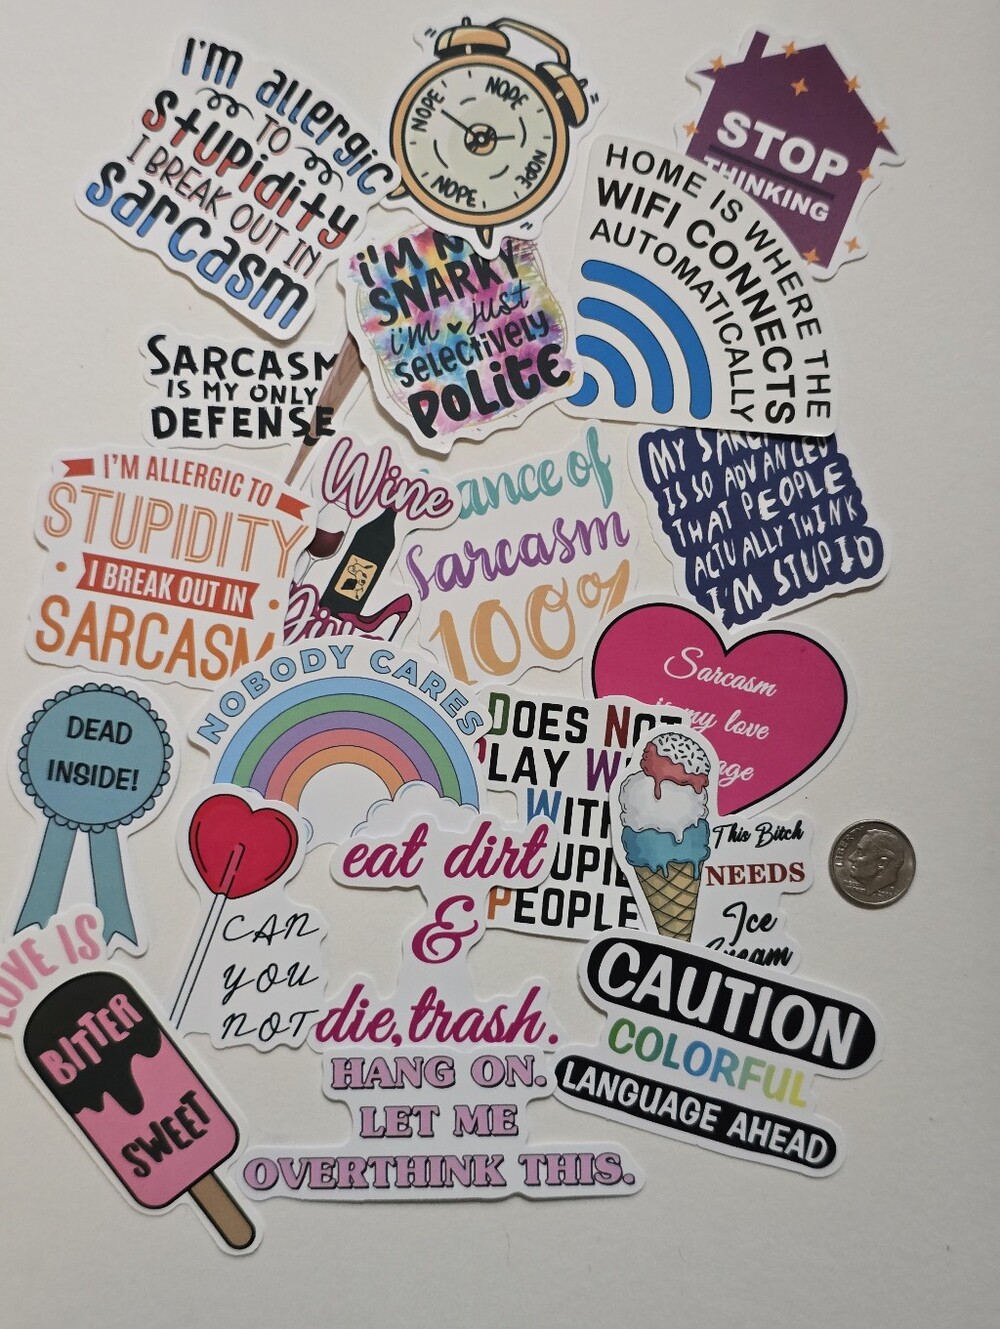 I'm allergic
TO
stupidity
I BREAK OUT IN
sarcasm
NOPE
NOPE
NOPE
NOPE
STOP
THINKING
HOME IS WHERE THE
WIFI CONNECTS
AUTOMATICALLY
i'm
SNARKY
i'm just
selectively
POLITE
SARCASM
IS MY ONLY
DEFENSE
I'M ALLERGIC TO
STUPIDITY
I BREAK OUT IN
SARCASM
Wine
ance of
Sarcasm
100%
MY
IS SO ADVANCED
THAT PEOPLE
ACTUALLY THINK
I'M STUPID
Sarcasm
my love
age
NOBODY CARES
DEAD
INSIDE!
DOES NOT
PLAY W
WITH
UPI
PEOPLE
This Bitch
NEEDS
Ice
Cream
CAN
YOU
NOT
eat dirt
&
die, trash.
LOVE IS
BITTER
SWEET
CAUTION
COLORFUL
LANGUAGE AHEAD
HANG ON.
LET ME
OVERTHINK THIS.